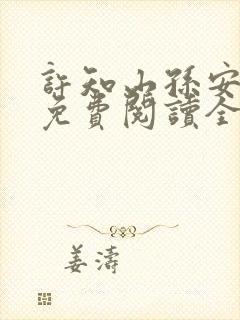 許知山孫安
免費閱讀全
姜濤